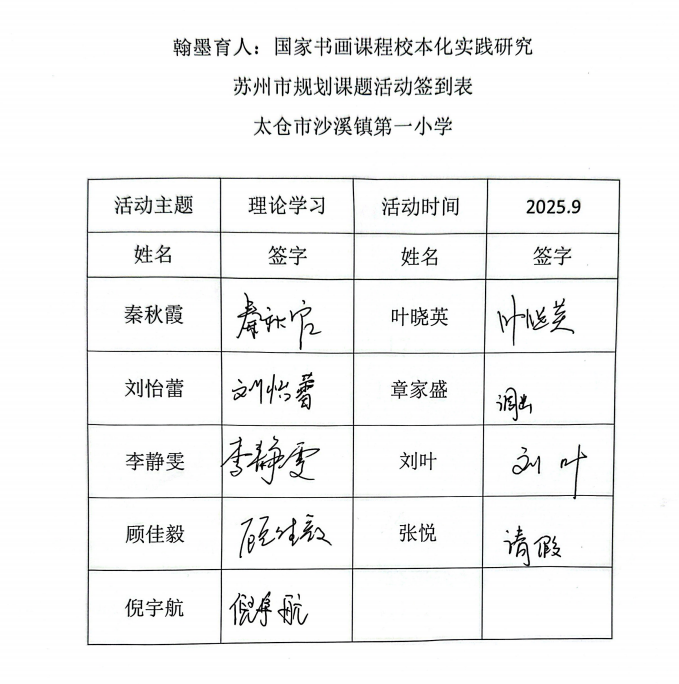 翰墨育人：国家书画课程校本化实践研究
苏州市规划课题活动签到表
太仓市沙溪镇第一小学
活动主题 理论学习 活动时间 2025.9
姓名 签字 姓名 签字
秦秋霞 秦秋霞 叶晓英 叶晓英
刘怡蕾 刘怡蕾 章家盛 调出
李静雯 李静雯 刘叶 刘叶
顾佳毅 顾佳毅 张悦 请假
倪宇航 倪宇航